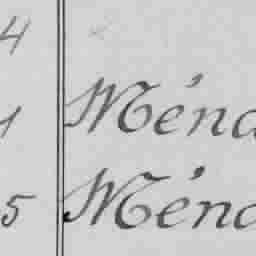 4
1 Ménd
5 Ménd